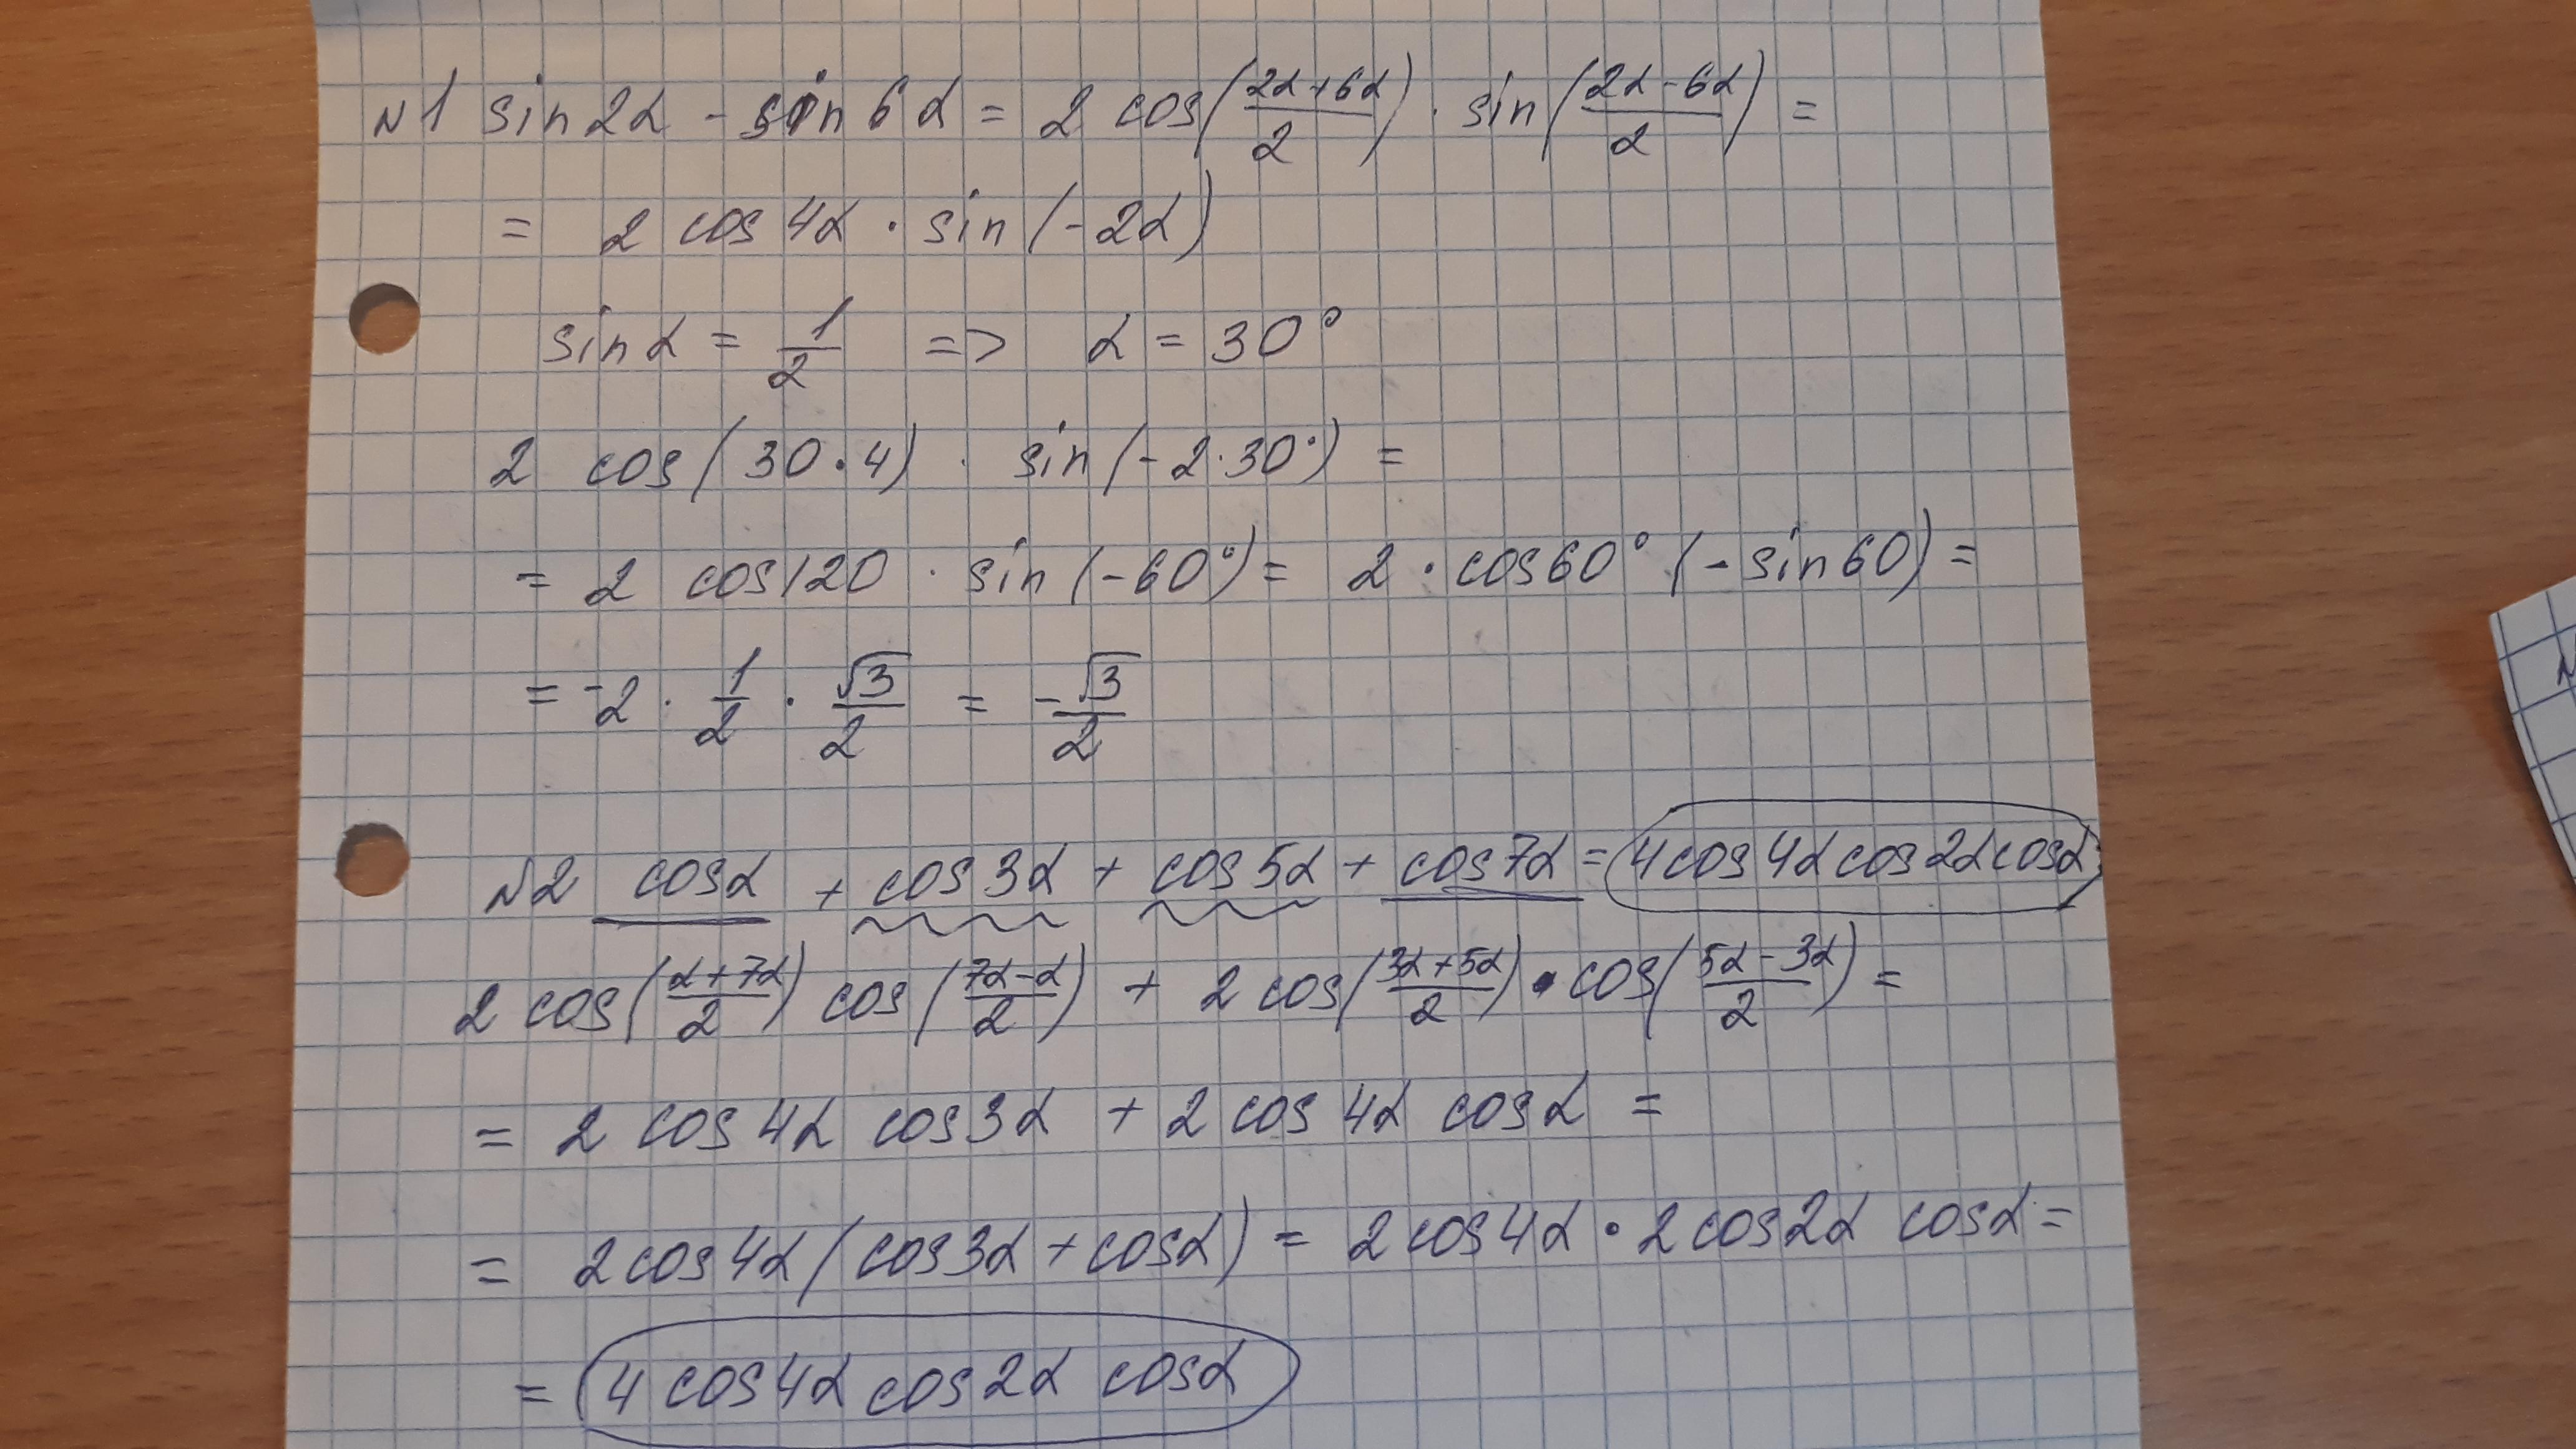 №1 sin2α - sin6α = 2 cos((2α+6α)/2) · sin((2α-6α)/2) =
= 2 cos4α · sin(-2α)
sinα = 1/2 => α = 30°
2 cos(30·4) · sin(-2·30°) =
= 2 cos120 · sin(-60°) = 2 · cos60° (-sin60) =
= -2 · 1/2 · √3/2 = -√3/2
№2 cosα + cos3α + cos5α + cos7α = 4cos4αcos2αcosα
2 cos((α+7α)/2) cos((7α-α)/2) + 2 cos((3α+5α)/2) · cos((5α-3α)/2) =
= 2 cos4α cos3α + 2 cos4α cosα =
= 2cos4α(cos3α+cosα) = 2cos4α · 2cos2α cosα =
= 4 cos4α cos2α cosα